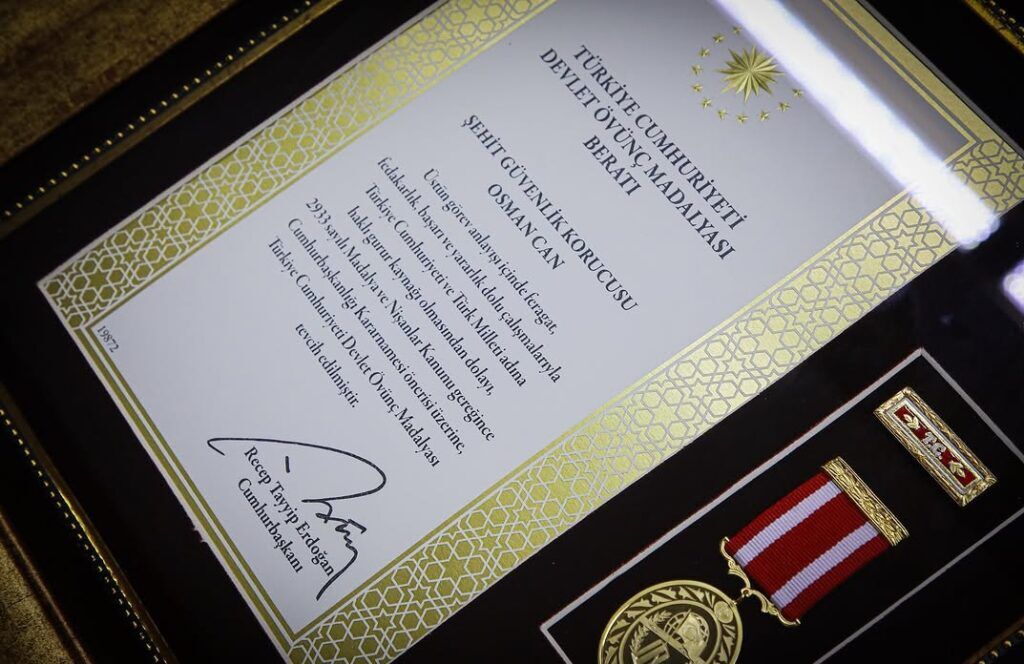 TÜRKİYE CUMHURİYETİ
DEVLET ÖVÜNÇ MADALYASI
BERATI
ŞEHİT GÜVENLİK KORUCUSU
OSMAN CAN
Üstün görev anlayışı içinde feragat,
fedakarlık, başarı ve yararlık dolu çalışmalarıyla
Türkiye Cumhuriyeti ve Türk Milleti adına
haklı gurur kaynağı olmasından dolayı,
2933 sayılı Madalya ve Nişanlar Kanunu gereğince
Cumhurbaşkanlığı Kararnamesi önerisi üzerine,
Türkiye Cumhuriyeti Devlet Övünç Madalyası
tevcih edilmiştir.
19872
Recep Tayyip Erdoğan
Cumhurbaşkanı
T.C.